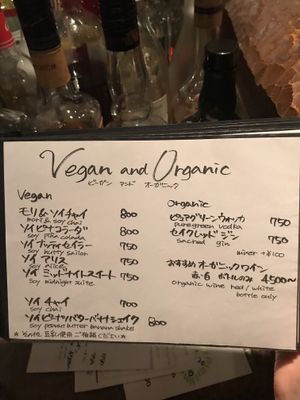 Vegan and Organic
ビーガン アンド オーガニック
Vegan
モリ&ソイチャイ 800
mori & soy chai
ソイピナコラーダ 800
soy piña colada
ソイ ナッティセイラー 750
soy nutty sailor
ソイ アリス 750
soy alice
ソイ ミッドナイトスイート 750
soy midnight suite
ソイ チャイ 700
soy chai
ソイピーナッツバターバナナシェイク 800
soy peanut butter banana shake
Organic
ピュアグリーンウォッカ 750
puregreen vodka
セイクレッドジン 750
sacred gin
mixer +¥100
おすすめ オーガニックワイン
赤/白 ボトルのみ 4500〜
organic wine red/white
bottle only